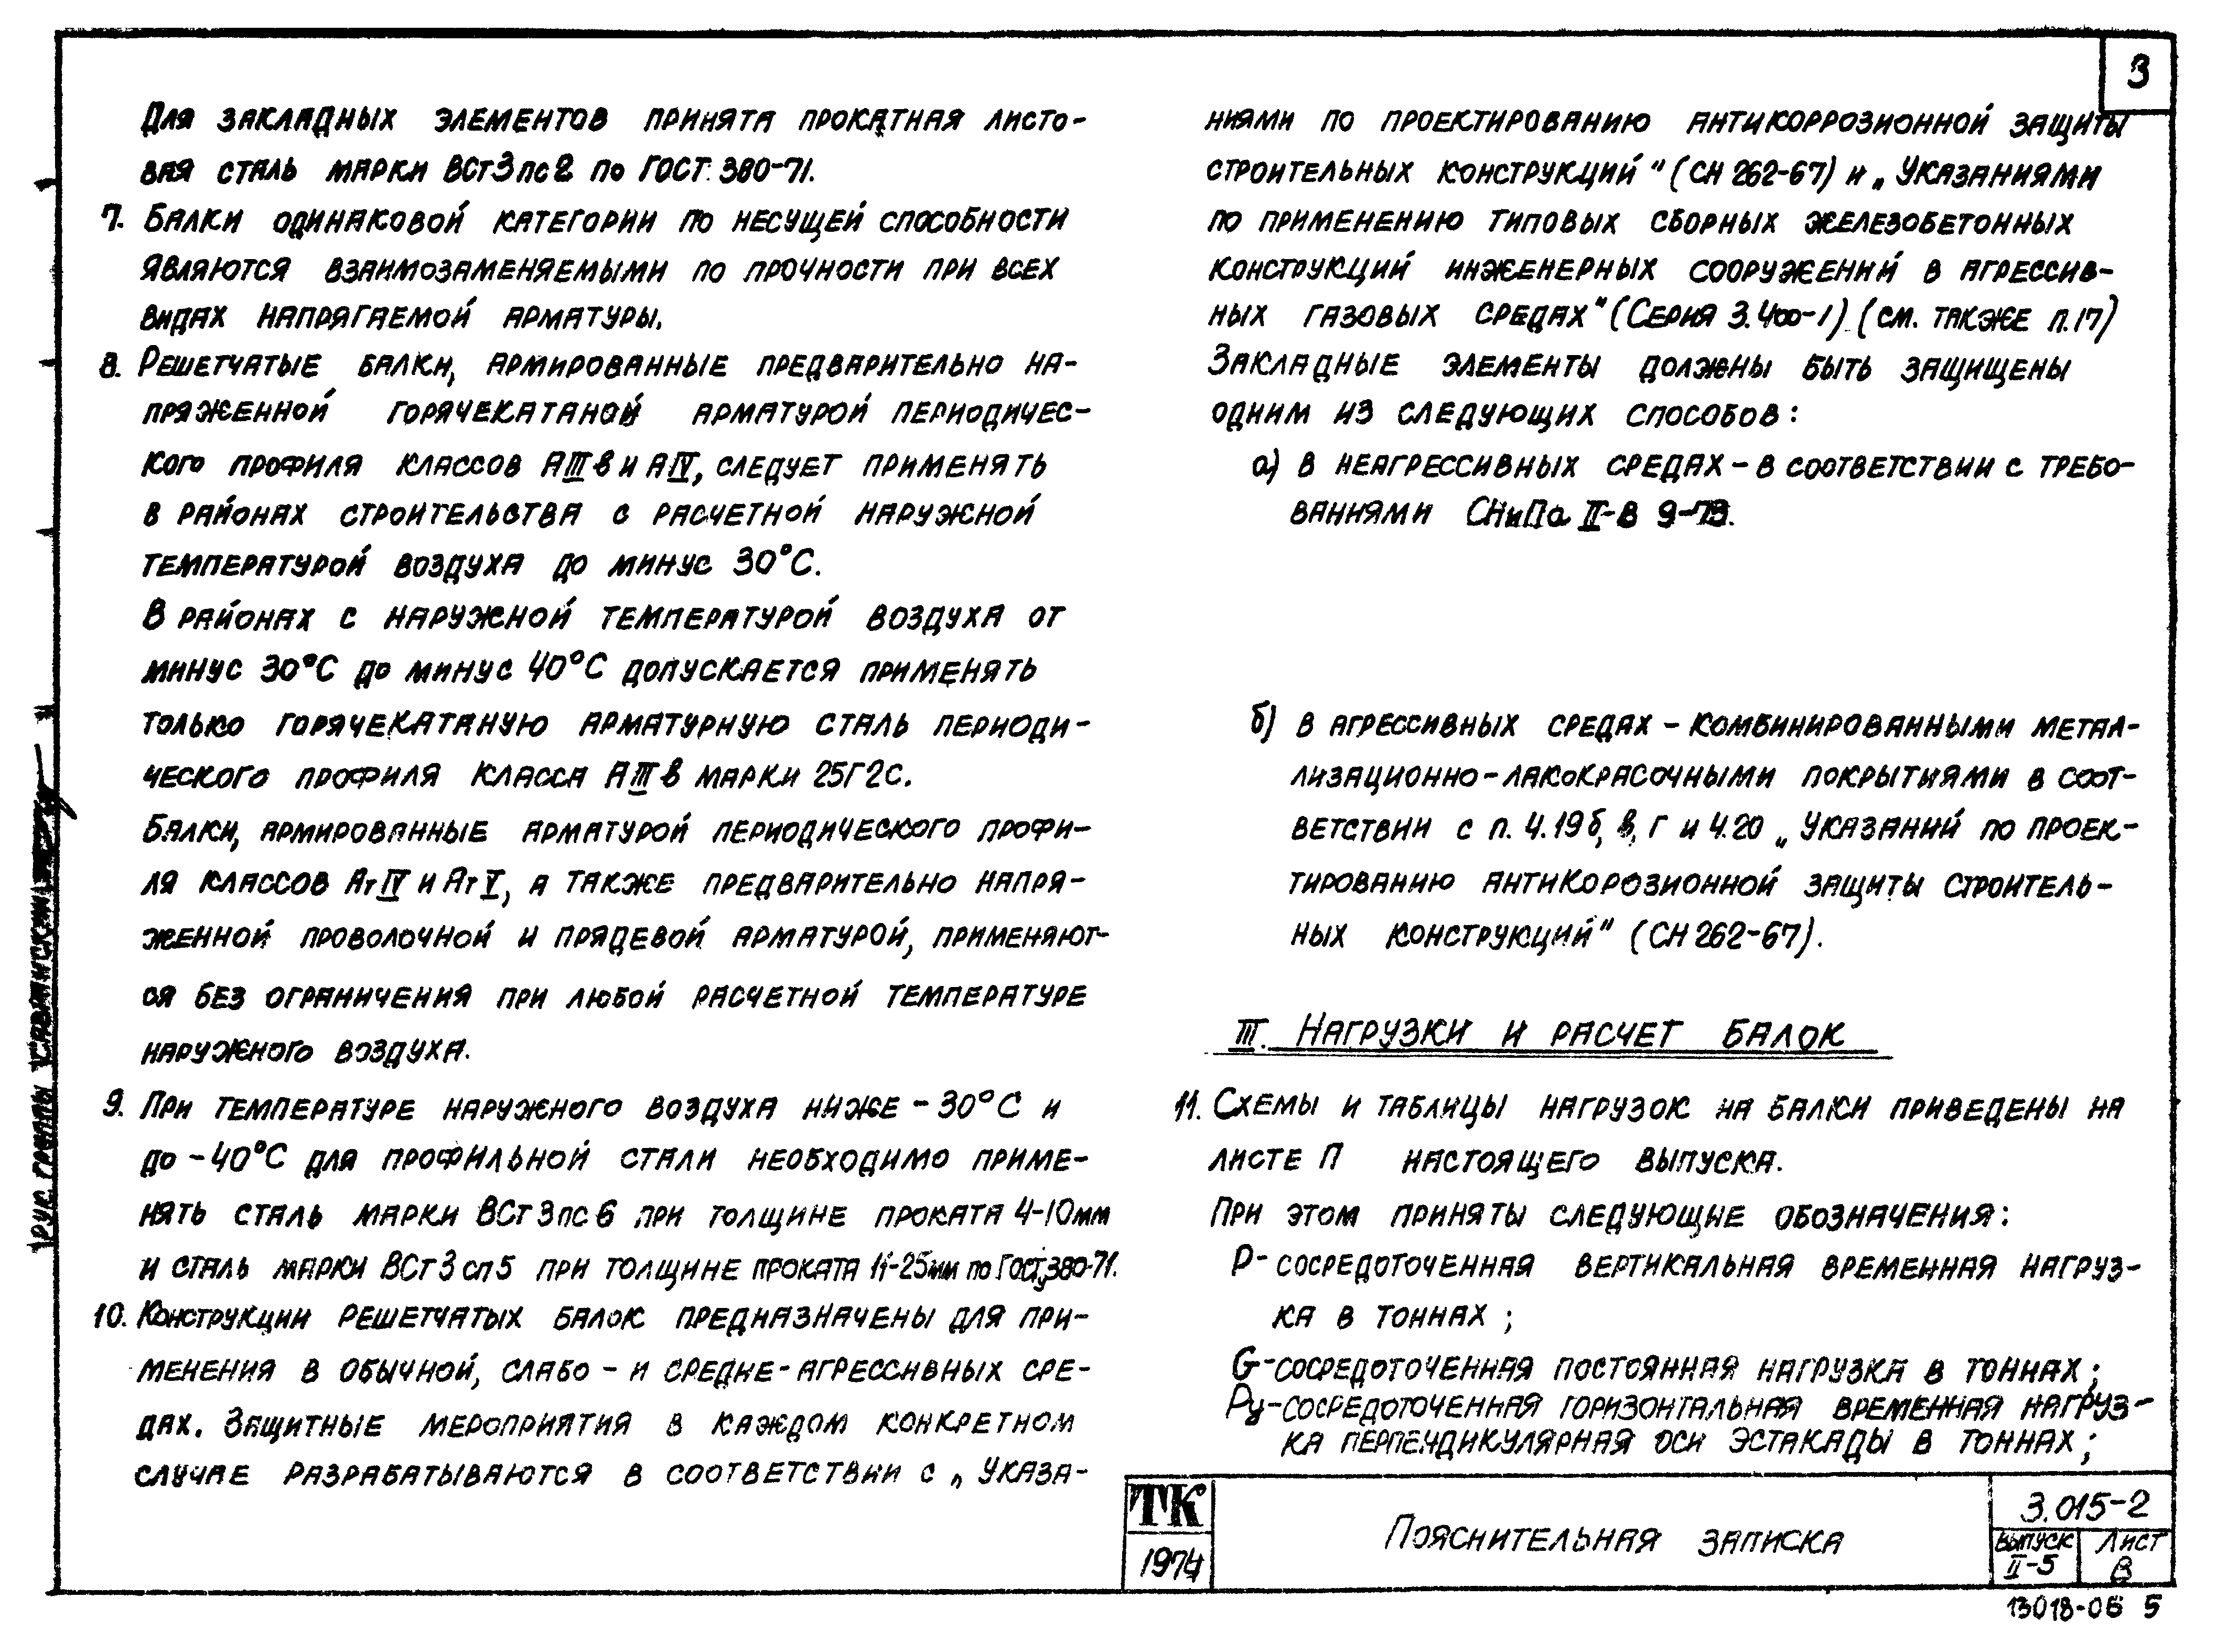 3
Для закладных элементов принята прокатная листо-
вая сталь марки ВСт3пс2 по ГОСТ 380-71.
7. Балки одинаковой категории по несущей способности
являются взаимозаменяемыми по прочности при всех
видах напрягаемой арматуры.
8. Решетчатые балки, армированные предварительно на-
пряженной горячекатаной арматурой периодичес-
кого профиля классов АIIIв и АIV, следует применять
в районах строительства с расчетной наружной
температурой воздуха до минус 30°С.
В районах с наружной температурой воздуха от
минус 30°С до минус 40°С допускается применять
только горячекатаную арматурную сталь периоди-
ческого профиля класса АIIIв марки 25Г2С.
Балки, армированные арматурой периодического профи-
ля классов АтIV и АтV, а также предварительно напря-
женной проволочной и прядевой арматурой, применяют-
ся без ограничения при любой расчетной температуре
наружного воздуха.
9. При температуре наружного воздуха ниже -30°С и
до -40°С для профильной стали необходимо приме-
нять сталь марки ВСт3пс6 при толщине проката 4-10мм
и сталь марки ВСт3сп5 при толщине проката 11-25мм по ГОСТ 380-71.
10. Конструкции решетчатых балок предназначены для при-
менения в обычной, слабо- и средне-агрессивных сре-
дах. Защитные мероприятия в каждом конкретном
случае разрабатываются в соответствии с „Указа-
ниями по проектированию антикоррозионной защиты
строительных конструкций" (СН 262-67) и „Указаниями
по применению типовых сборных железобетонных
конструкций инженерных сооружений в агрессив-
ных газовых средах" (Серия 3.400-1) (см. также п.17)
Закладные элементы должны быть защищены
одним из следующих способов:
а) в неагрессивных средах - в соответствии с требо-
ваниями СНиПа II-В 9-73.
б) в агрессивных средах - комбинированными метал-
лизационно-лакокрасочными покрытиями в соот-
ветствии с п. 4.19б, в, г и 4.20 „Указаний по проек-
тированию антикорозионной защиты строитель-
ных конструкций" (СН 262-67).
III. Нагрузки и расчет балок
11. Схемы и таблицы нагрузок на балки приведены на
листе П настоящего выпуска.
При этом приняты следующие обозначения:
Р- сосредоточенная вертикальная временная нагруз-
ка в тоннах;
G- сосредоточенная постоянная нагрузка в тоннах;
Ру- сосредоточенная горизонтальная временная нагруз-
ка перпендикулярная оси эстакады в тоннах;
Рук. группы
ТК
1974
Пояснительная записка
3.015-2
Выпуск
II-5
Лист
В
13018-06 5